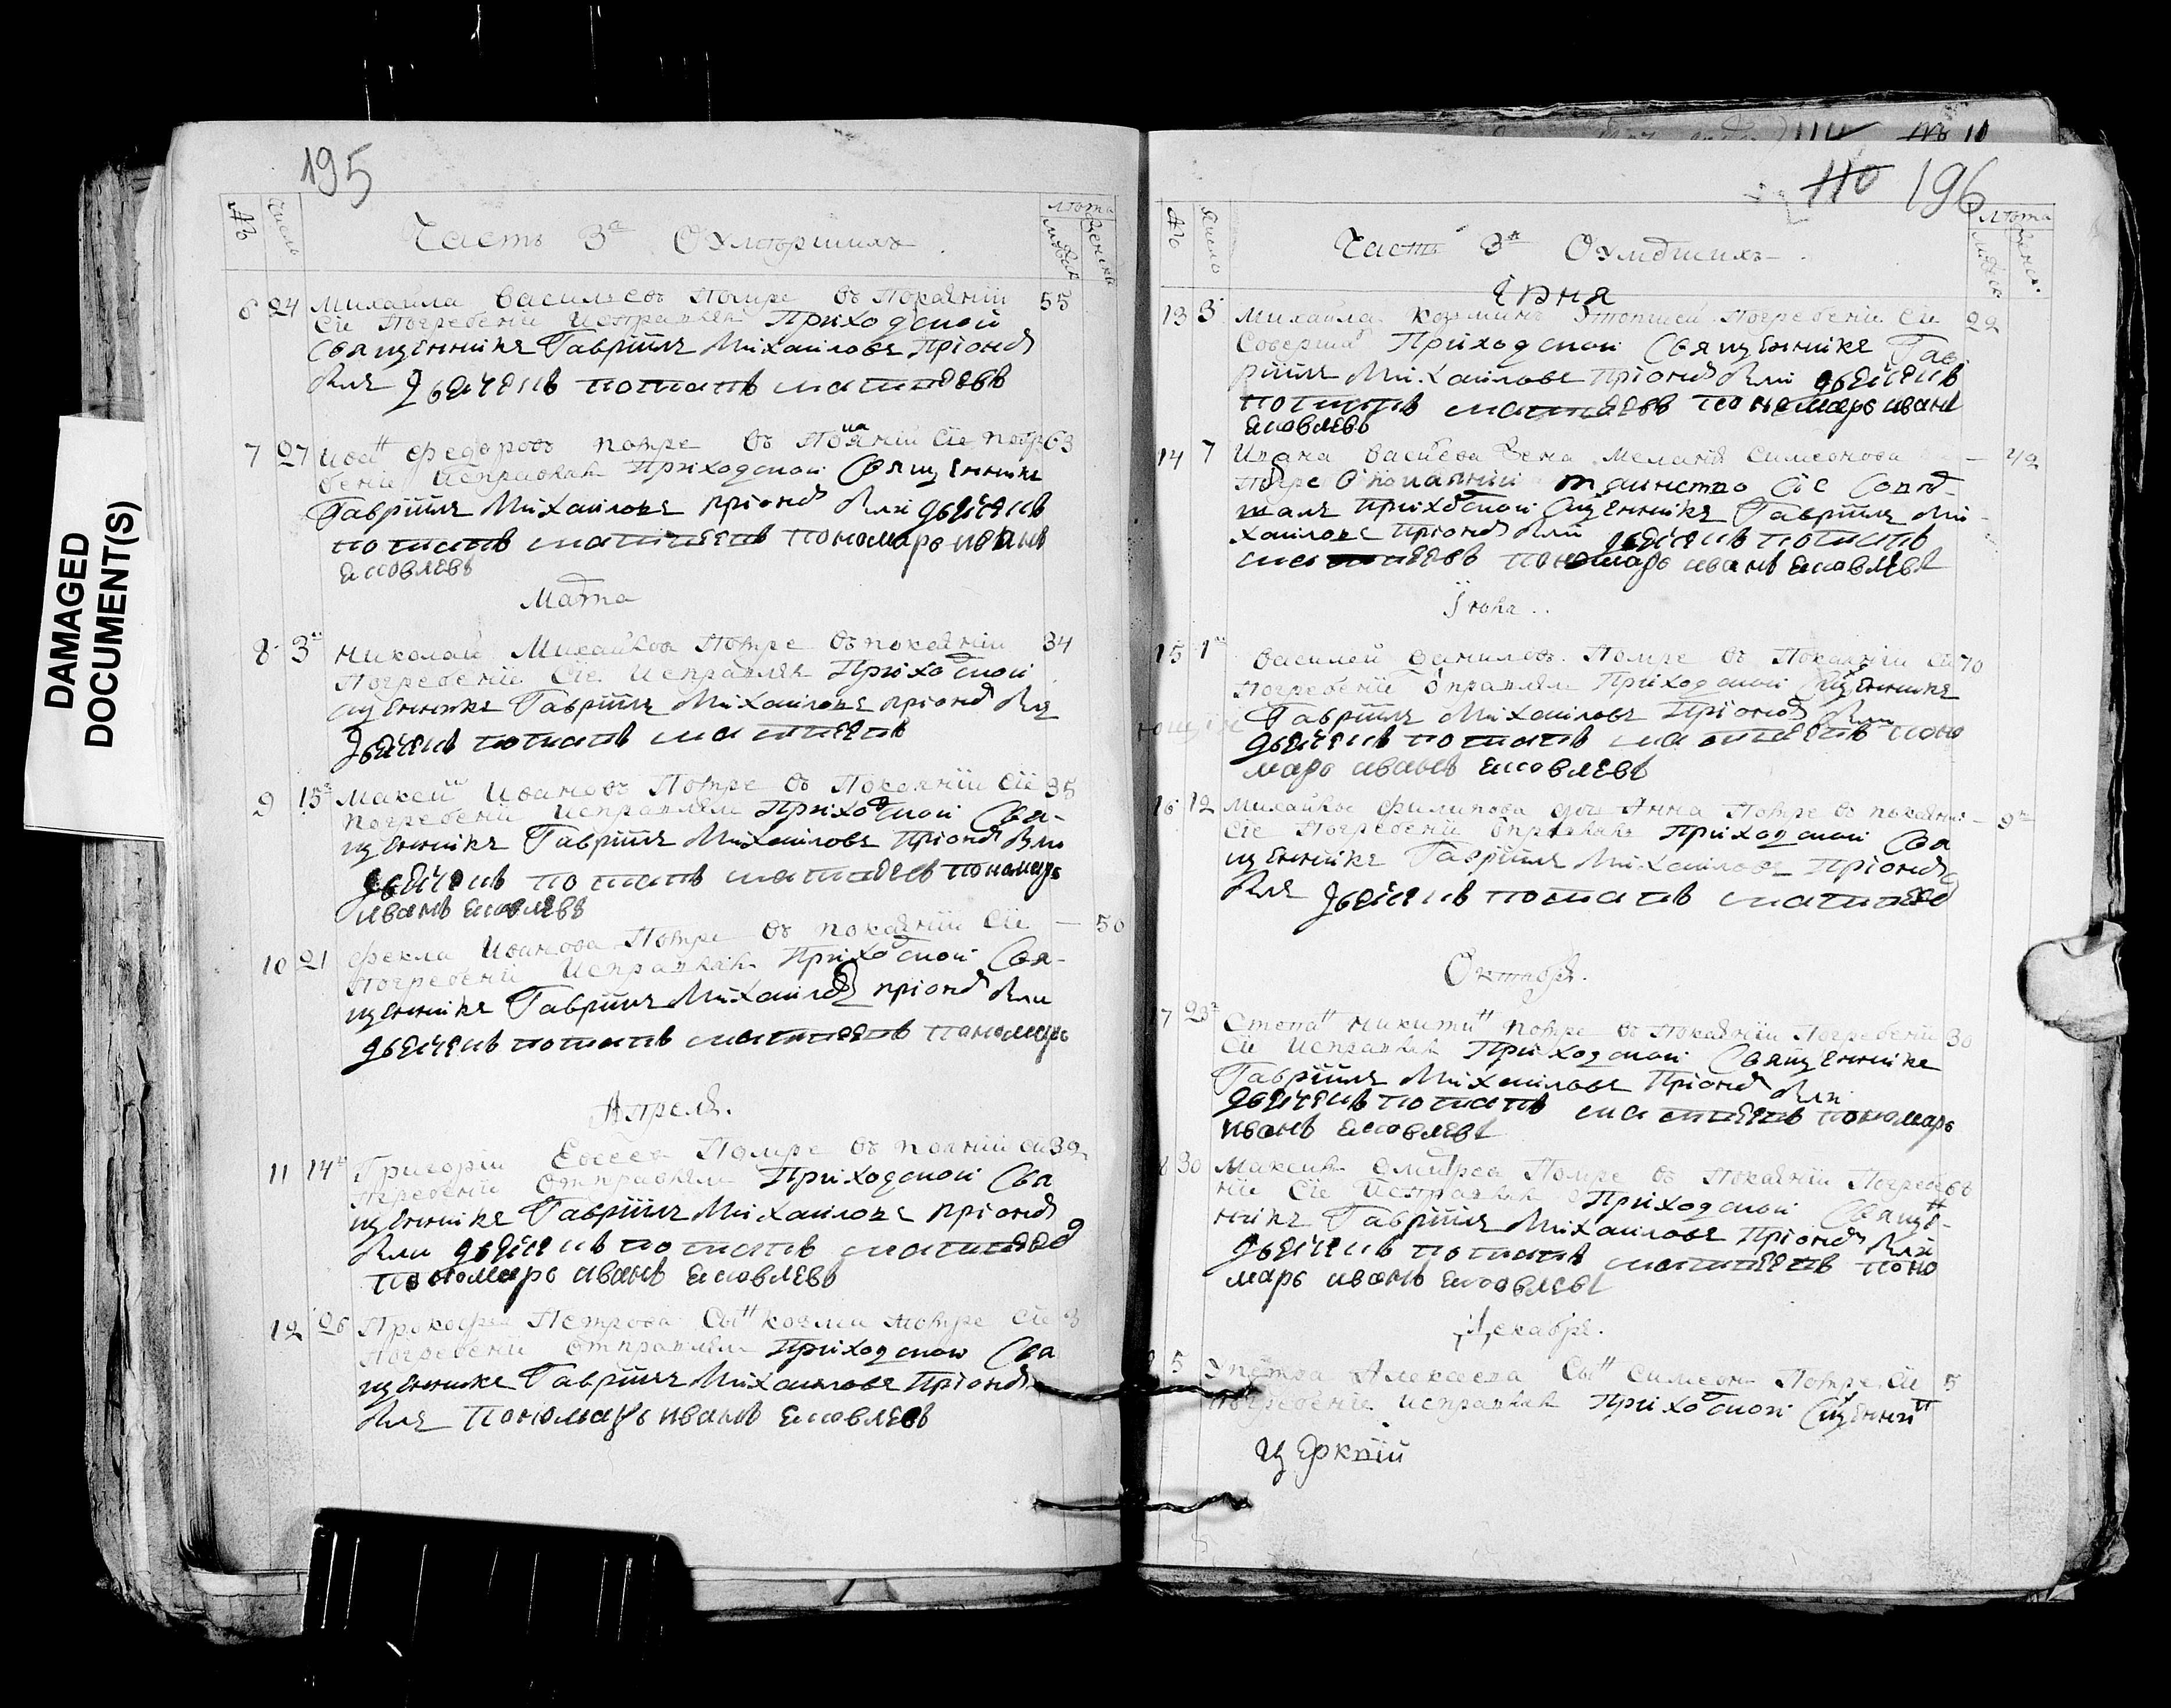 DAMAGED
DOCUMENT(S)
195
№
число
Часть 3я О Умершихъ
лѣта
мужск
женска
6 24 Михаила Васильевъ Помре въ Покаянiи 55
Сiе Погребенiе Исправлялъ Приходской
Священникъ Гаврiилъ Михаиловъ
дьячекъ потапъ матвѣевъ
7 27 Иванъ Федоровъ помре въ Покаянiи Сiе погр 63
бенiе Исправлялъ Приходской Священникъ
Гаврiилъ Михаиловъ дьячекъ
потапъ матвѣевъ пономарь иванъ
яковлевъ
Марта
8 3 Николай Михайлов Помре въ покаянiи 34
Погребенiе Сiе Исправлялъ Приходской
Сщенникъ Гаврiилъ Михаиловъ
дьячекъ потапъ матвѣевъ
9 15 Максим Ивановъ Помре въ Покаянiи Сiе 35
погребенiе Исправлялъ Приходской Свя-
щенникъ Гаврiилъ Михаиловъ
дьячекъ потапъ матвѣевъ пономарь
иванъ яковлевъ
10 21 Фекла Иванова Помре въ покаянiи Сiе — 50
Погребенiе Исправлялъ Приходской Свя-
щенникъ Гаврiилъ Михаиловъ
дьячекъ потапъ матвѣевъ пономарь
Апреля.
11 14 Григорiй Евсеев Помре въ покаянiи сiе 39
погребенiе отправлялъ Приходской Свя
щенникъ Гаврiилъ Михаиловъ
дьячекъ потапъ матвѣевъ
пономарь иванъ яковлевъ
12 26 Прокофья Петрова Сынъ козма помре Сiе 3
погребенiе отправлялъ Приходской Свя
щенникъ Гаврiилъ Михаиловъ
пономарь иванъ яковлевъ
110 196
№
число
Часть 3я О Умершихъ
лѣта
мужск
женск.
Iюня
13 3 Михаила Козминъ Утопшей Погребенiе Сiе 22
Совершалъ Приходской Священникъ Гав
рiилъ Михаиловъ дьячекъ
потапъ матвѣевъ пономарь иванъ
яковлевъ
14 7 Ивана Васильева Жена Меланiя Симеонова — 42
помре в покаянiи таинство Сiе
Приходской Сщенникъ Гаврiилъ Ми
хаиловъ дьячекъ потапъ
матвѣевъ пономарь иванъ яковлевъ
15 1 Василей Данилов Помре въ Покаянiи Сiе 70
Погребенiе отправлялъ Приходской Сщенникъ
Гаврiилъ Михаиловъ
дьячекъ потапъ матвѣевъ поно
марь иванъ яковлевъ
16 12 Михайлы Филипова дочь Анна Помре в покаянiи — 9
Сiе Погребенiе отправлялъ Приходской Свя
щенникъ Гаврiилъ Михаиловъ
дьячекъ потапъ матвѣев
Октября.
7 23 Степанъ Никитинъ Помре въ Покаянiи Погребенiе 30
Сiе Исправлялъ Приходской Священникъ
Гаврiилъ Михаиловъ
дьячекъ потапъ матвѣевъ пономарь
иванъ яковлевъ
8 30 Максим Помре въ Покаянiи Погребе
нiе Сiе Исправлялъ Приходской Священ-
никъ Гаврiилъ Михаиловъ
дьячекъ потапъ матвѣевъ поно
марь иванъ яковлевъ
Декабря.
5 Петра Алексеева Сынъ Симеонъ Помре Сiе 5
Погребенiе Исправлялъ Приходской Сщенни
церкви